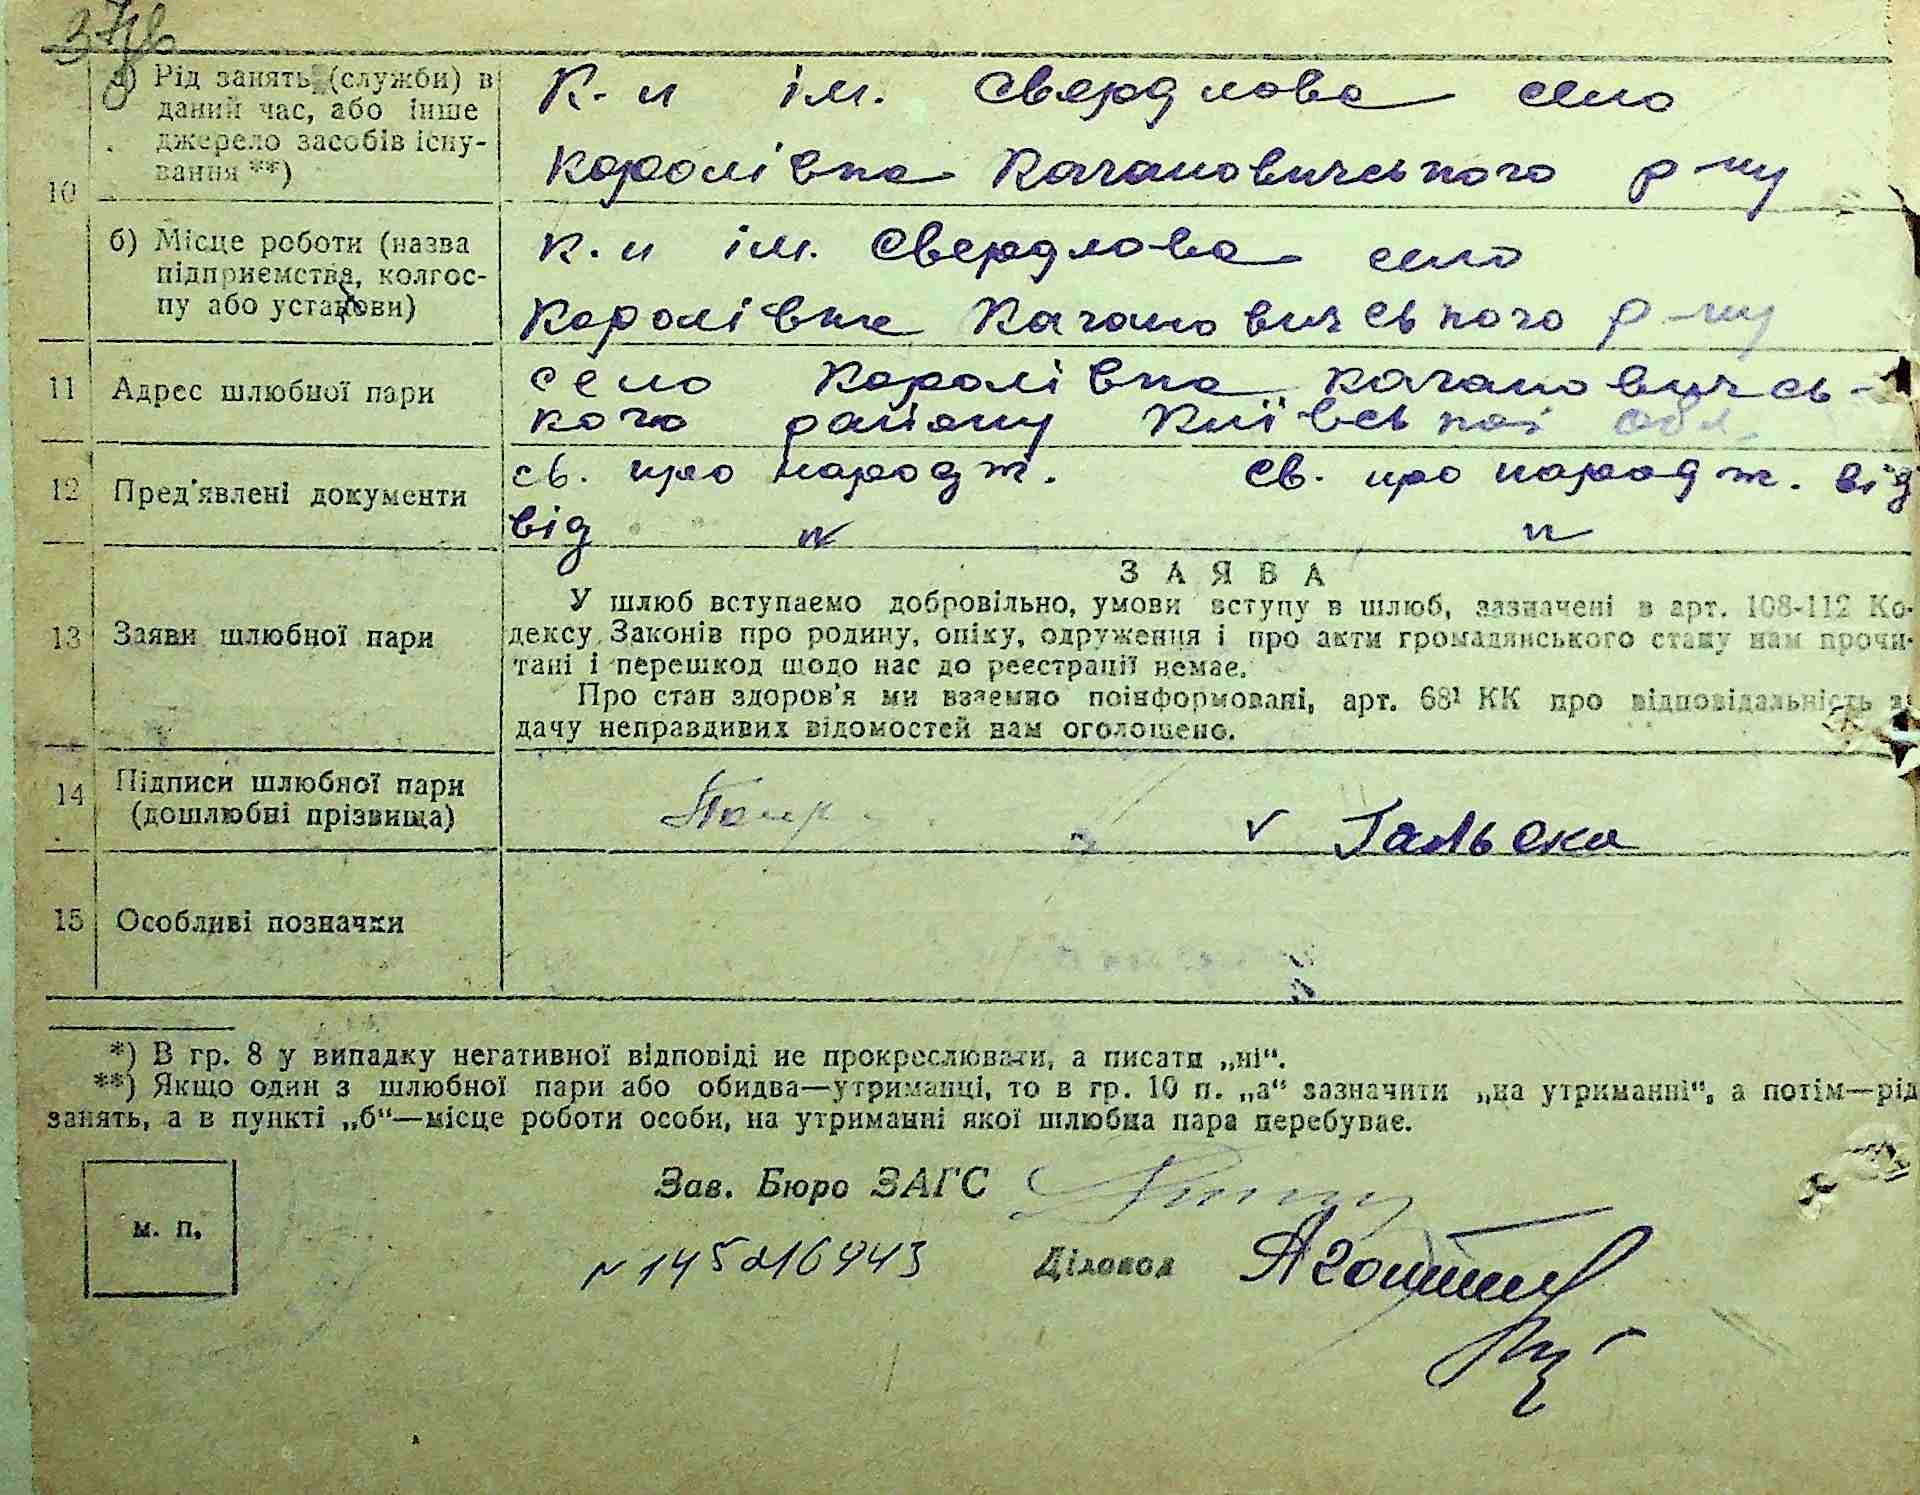 а) Рід занять (служби) в даний час, або інше джерело засобів існування **)
К-п ім. Свердлова село
Королівка Кагановичського р-ну
10
б) Місце роботи (назва підприємства, колгоспу або установи)
к-п ім. Свердлова село
Королівка Кагановичського р-ну
11 Адрес шлюбної пари
село Королівка Кагановичсь-
кого району Київської обл.
12 Пред'явлені документи
св. про народж. св. про народж. від
від
13 Заяви шлюбної пари
ЗАЯВА
У шлюб вступаємо добровільно, умови вступу в шлюб, зазначені в арт. 108-112 Ко-
дексу Законів про родину, опіку, одруження і про акти громадянського стану нам прочи-
тані і перешкод щодо нас до реєстрації немає.
Про стан здоров'я ми взаємно поінформовані, арт. 68¹ КК про відповідальність за
дачу неправдивих відомостей нам оголошено.
14 Підписи шлюбної пари
(дошлюбні прізвища)
Гальска
15 Особливі позначки
*) В гр. 8 у випадку негативної відповіді не прокреслювати, а писати „ні“.
**) Якщо один з шлюбної пари або обидва—утриманці, то в гр. 10 п. „а“ зазначити „на утриманні“, а потім—рід
занять, а в пункті „б“—місце роботи особи, на утриманні якої шлюбна пара перебуває.
Зав. Бюро ЗАГС
м. п.
Діловод